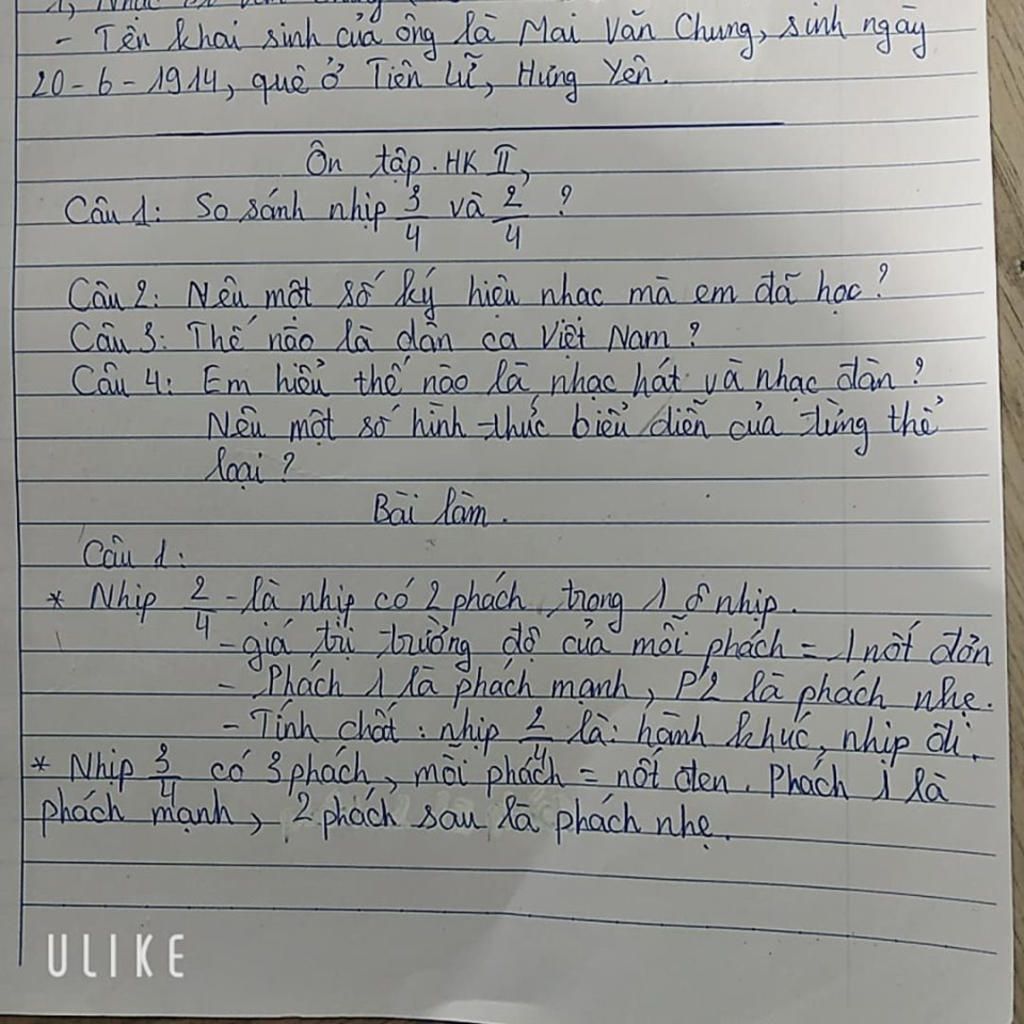 - Tên khai sinh của ông là Mai Văn Chung, sinh ngày
20-6-1914, quê ở Tiên Lữ, Hưng Yên.
Ôn tập HK II,
Câu 1: So sánh nhịp 3/4 và 2/4 ?
Câu 2: Nêu một số ký hiệu nhạc mà em đã học?
Câu 3: Thế nào là dân ca Việt Nam ?
Câu 4: Em hiểu thế nào là nhạc hát và nhạc đàn ?
Nêu một số hình thức biểu diễn của từng thể
loại ?
Bài làm.
Câu 1:
* Nhịp 2/4 - là nhịp có 2 phách trong 1 ô nhịp.
- giá trị trường độ của mỗi phách = 1 nốt đơn
- Phách 1 là phách mạnh, P2 là phách nhẹ.
- Tính chất : nhịp 2/4 là: hành khúc, nhịp đi.
* Nhịp 3/4 có 3 phách, mỗi phách = nốt đen. Phách 1 là
phách mạnh, 2 phách sau là phách nhẹ.
ULIKE